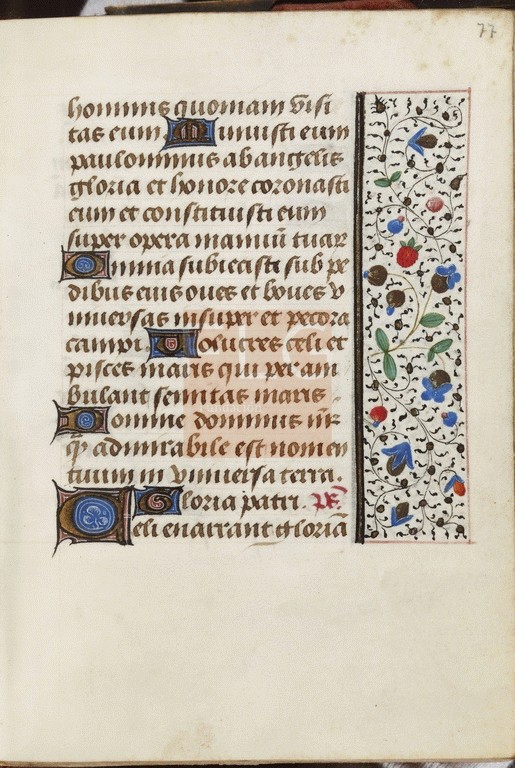 77
hominis quoniam visi
tas eum. Minuisti eum
paulominus ab angelis
gloria et honore coronasti
eum et constituisti eum
super opera manuū tuaꝝ
Omnia subiecisti sub pe
dibus eius oues et boues v
niuersas insuper et pecora
campi. Uolucres celi et
pisces maris qui peram
bulant semitas maris
Domine dominus nr̄
q̄ admirabile est nomen
tuum in vniuersa terra.
Gloria patri. ps̄
Celi enarrant gloriā